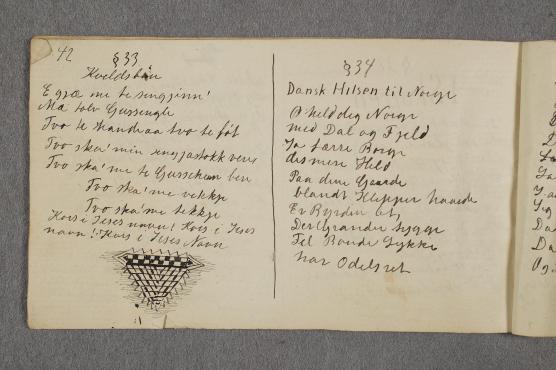 42
§33
Kveldsbøn
E gjæ me te sengjinn!
Mæ tolv Gussengle
Tvo te handaa tvo te fót
Tvo ska' min sengjastokk vera
Tvo ska' me te Gusscheim ben
Tvo ska' me vekkje
Tvo ska' me tekkje
Kors i Jeses navn! Kors i Jeses
navn! Kors i Jeses Navn
§34
Dansk Hilsen til Norge
O held dig Norge
med Dal og Fjeld
Ja færre Borge
des mere Held
Paa dine Gaarde
blandt Klipper haarde
Er Byrden let,
Der Grander bygge
Til Bonde Lykke
har Odelsret